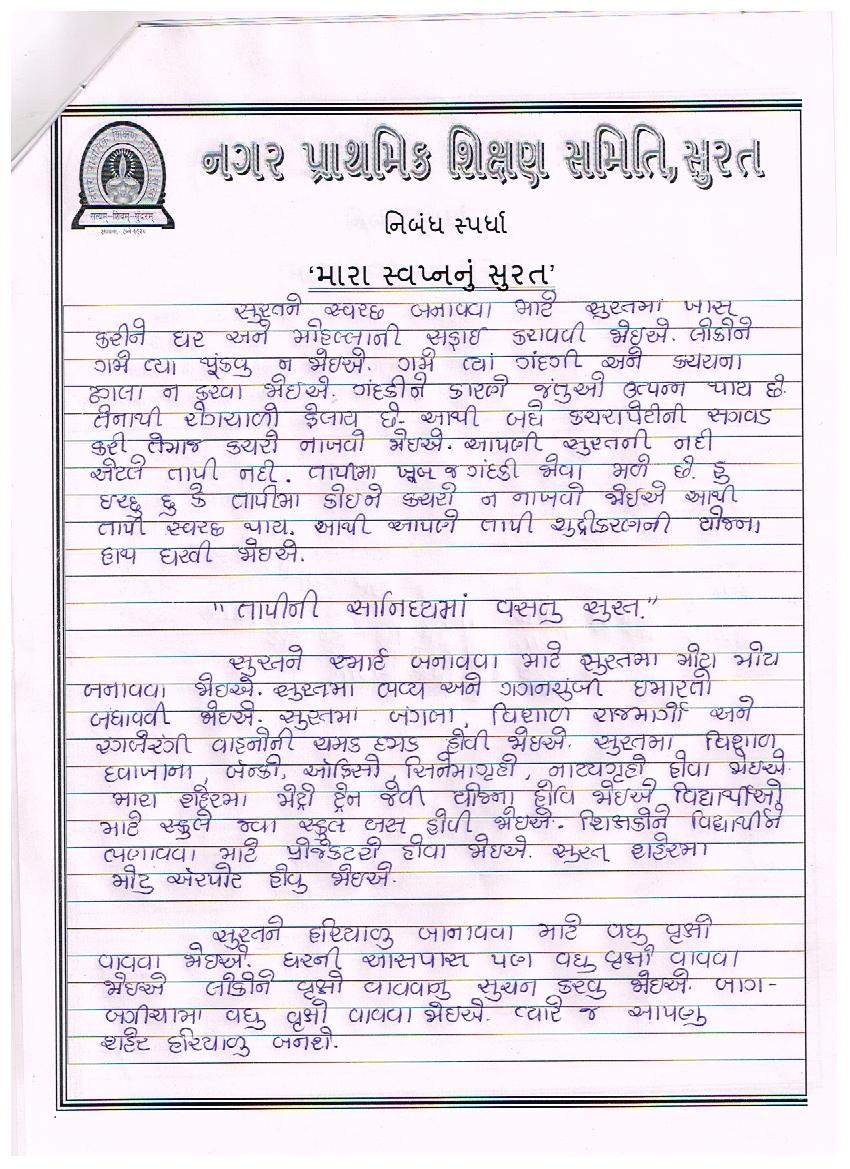 નગર પ્રાથમિક શિક્ષણ સમિતિ, સુરત
સત્યમ્-શિવમ્-સુંદરમ્
નિબંધ સ્પર્ધા
'મારા સ્વપ્નનું સુરત'
સુરતને સ્વચ્છ બનાવવા માટે સુરતમાં ખાસ
કરીને ઘર અને મોહલ્લાની સફાઇ કરાવવી જોઇએ. લોકોને
ગમે ત્યા થૂંકવુ ન જોઇએ. ગમે ત્યાં ગંદગી અને કચરાના
ઢગલા ન કરવા જોઇએ. ગંદકીને કારણે જંતુઓ ઉત્પન્ન થાય છે.
તેનાથી રોગચાળો ફેલાય છે. આથી બધે કચરાપેટીની સગવડ
કરી તેમાજ કચરો નાખવો જોઇએ. આપણી સુરતની નદી
એટલે તાપી નદી. તાપીમા ખૂબ જ ગંદકી જોવા મળે છે. હુ
ઇચ્છુ છુ કે તાપીમા કોઇને કચરો ન નાખવો જોઇએ આથી
તાપી સ્વચ્છ થાય. આથી આપણે તાપી શુદ્રીકરણની યોજના
હાથ ધરવી જોઇએ.
"તાપીની સાનિધ્યમાં વસતુ સુરત."
સુરતને સ્માર્ટ બનાવવા માટે સુરતમા મોટા મોટા
બનાવવા જોઇએ. સુરતમા ભવ્ય અને ગગનચુંબી ઇમારતો
બંધાવવી જોઇએ. સુરતમા બંગલા, વિશાળ રાજમાર્ગો અને
રંગબેરંગી વાહનોની ચમક દમક હોવી જોઇએ. સુરતમા વિશાળ
દવાખાના, બેન્કો, ઓફિસો, સિનેમાગૃહો, નાટ્યગૃહો હોવા જોઇએ.
મારા શહેરમા મેટ્રો ટ્રેન જેવી યોજના હોવિ જોઇએ વિદ્યાર્થીઓ
માટે સ્કુલે જવા સ્કુલ બસ હોવી જોઇએ. શિક્ષકોને વિદ્યાર્થીને
ભણાવવા માટે પ્રોજેકટરો હોવા જોઇએ. સુરત શહેરમા
મોટુ એરપોર્ટ હોવુ જોઇએ.
સુરતને હરિયાળુ બાનાવવા માટે વધુ વૃક્ષો
વાવવા જોઇએ. ઘરની આસપાસ પણ વધુ વૃક્ષો વાવવા
જોઇએ લોકોને વૃક્ષો વાવવાનુ સુચન કરવુ જોઇએ. બાગ-
બગીચામા વધુ વૃક્ષો વાવવા જોઇએ. ત્યારે જ આપણુ
શહેર હરિયાળુ બનશે.